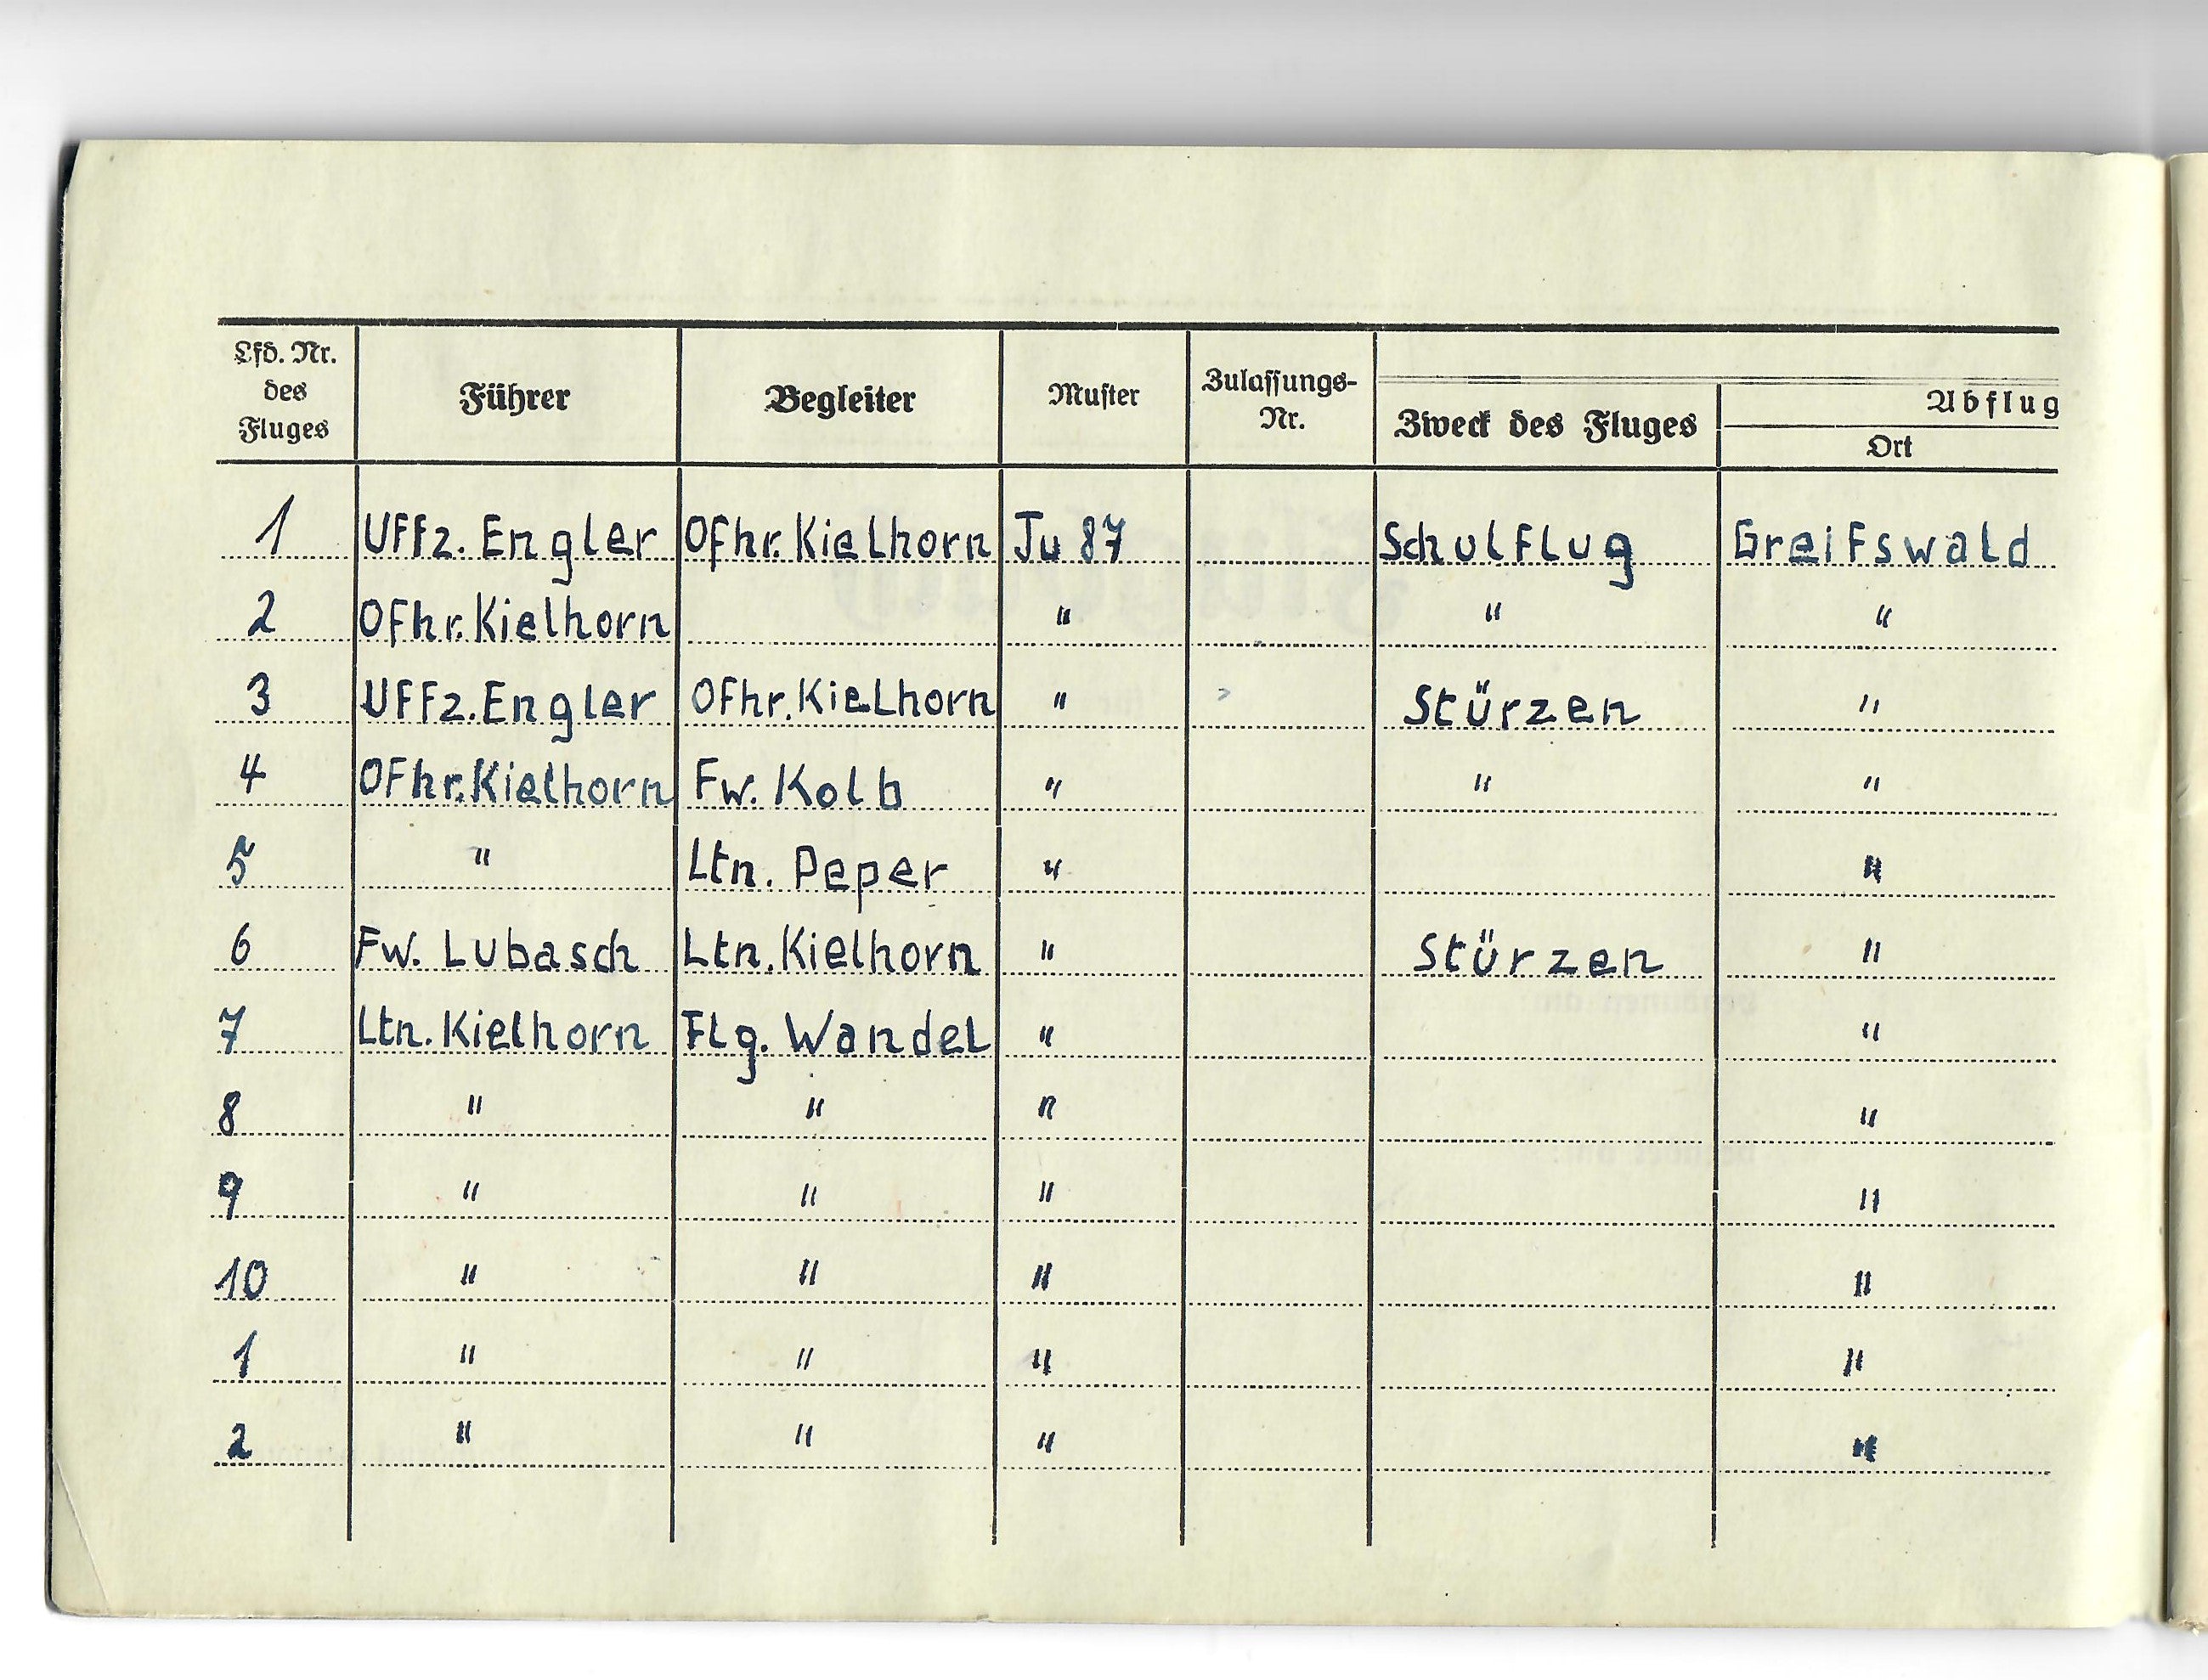 Lfd. Nr. des Fluges Führer Begleiter Muster Zulassungs-Nr. Zweck des Fluges Abflug Ort
1 Uffz. Engler Ofhr. Kielhorn Ju 87 Schulflug Greifswald
2 Ofhr. Kielhorn " " "
3 Uffz. Engler Ofhr. Kielhorn " Stürzen "
4 Ofhr. Kielhorn Fw. Kolb " " "
5 " Ltn. Peper " "
6 Fw. Lubasch Ltn. Kielhorn " Stürzen "
7 Ltn. Kielhorn Flg. Wandel " "
8 " " " "
9 " " " "
10 " " " "
1 " " " "
2 " " " "